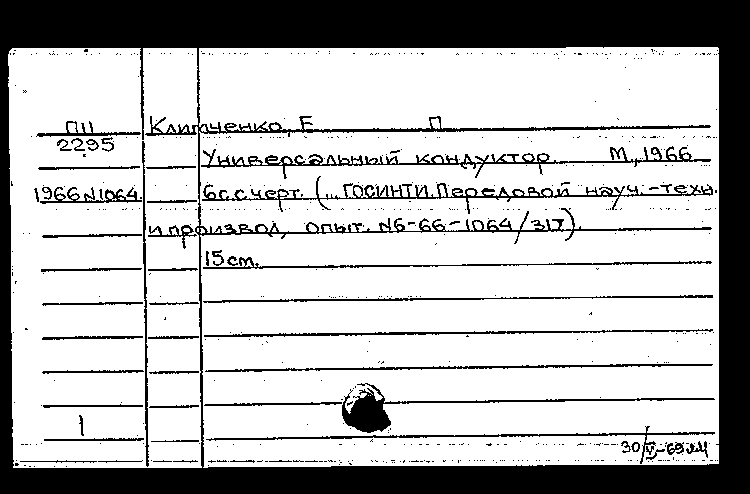 П11 Климченко, Е П
2295
Универсальный кондуктор. М., 1966
1966 N1064. 6 с. с черт. (... ГОСИНТИ. Передовой науч.-техн.
и производ, опыт. N6-66-1064/317).
15 cm.
1
30/V-69